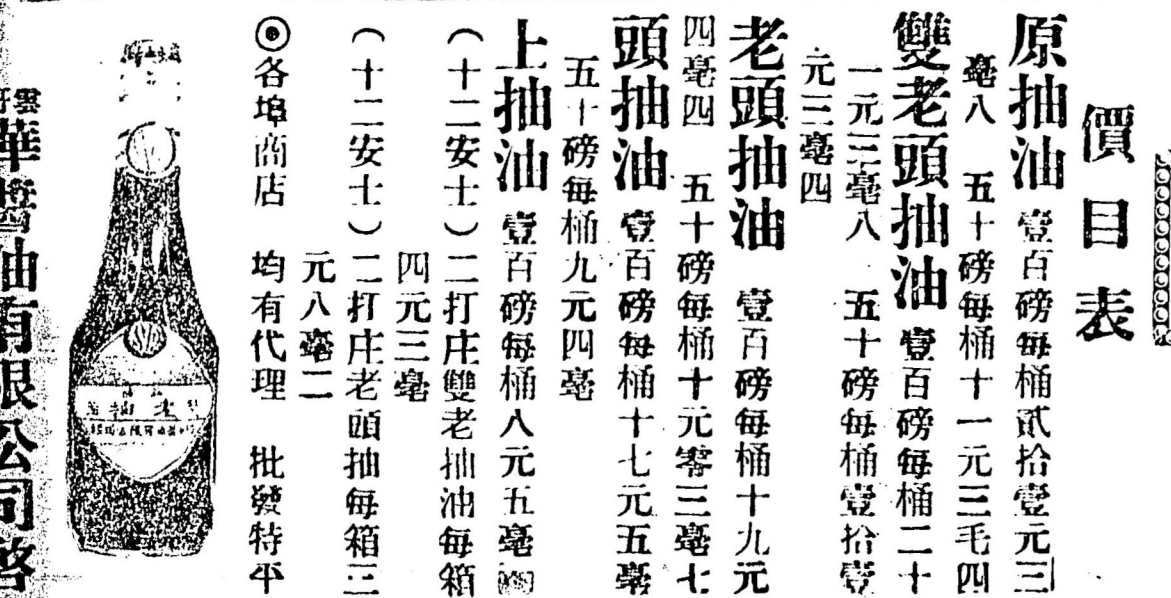 價目表
原抽油 壹百磅每桶貳拾壹元三
毫八 五十磅每桶十一元三毛四
雙老頭抽油 壹百磅每桶二十
一元三毫八 五十磅每桶壹拾壹
元三毫四
老頭抽油 壹百磅每桶十九元
四毫四 五十磅每桶十元零三毫七
頭抽油 壹百磅每桶十七元五毫
五十磅每桶九元四毫
上抽油 壹百磅每桶八元五毫
(十二安士)二打庄雙老抽油每箱
四元三毫
(十二安士)二打庄老頭抽每箱三
元八毫二
◉各埠商店 均有代理 批發特平
華醬油有限公司啓